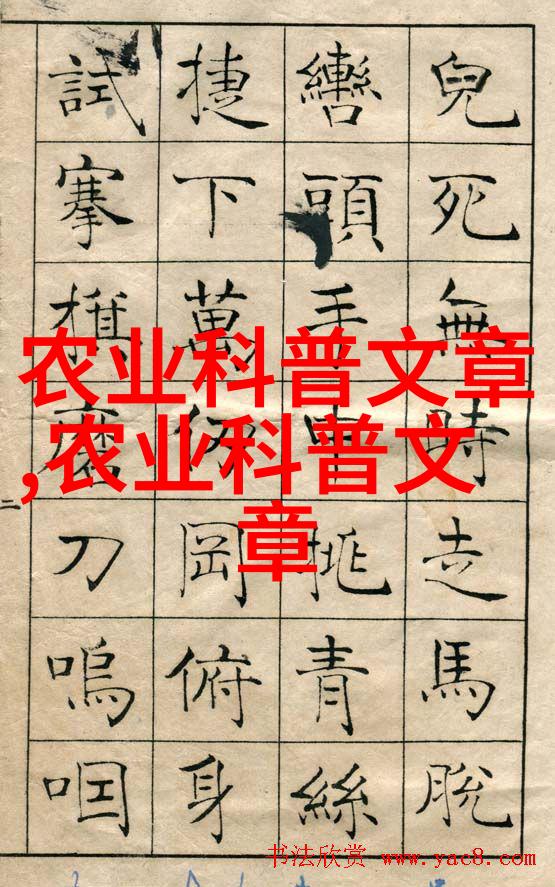 兒死無時走馬脫
轡頭手中挑青絲
捷下萬仞岡俯身
試搴旗磨刀嗚咽
二
农业科普文章
,农业科普文
章
书法欣赏 www.yac8.com